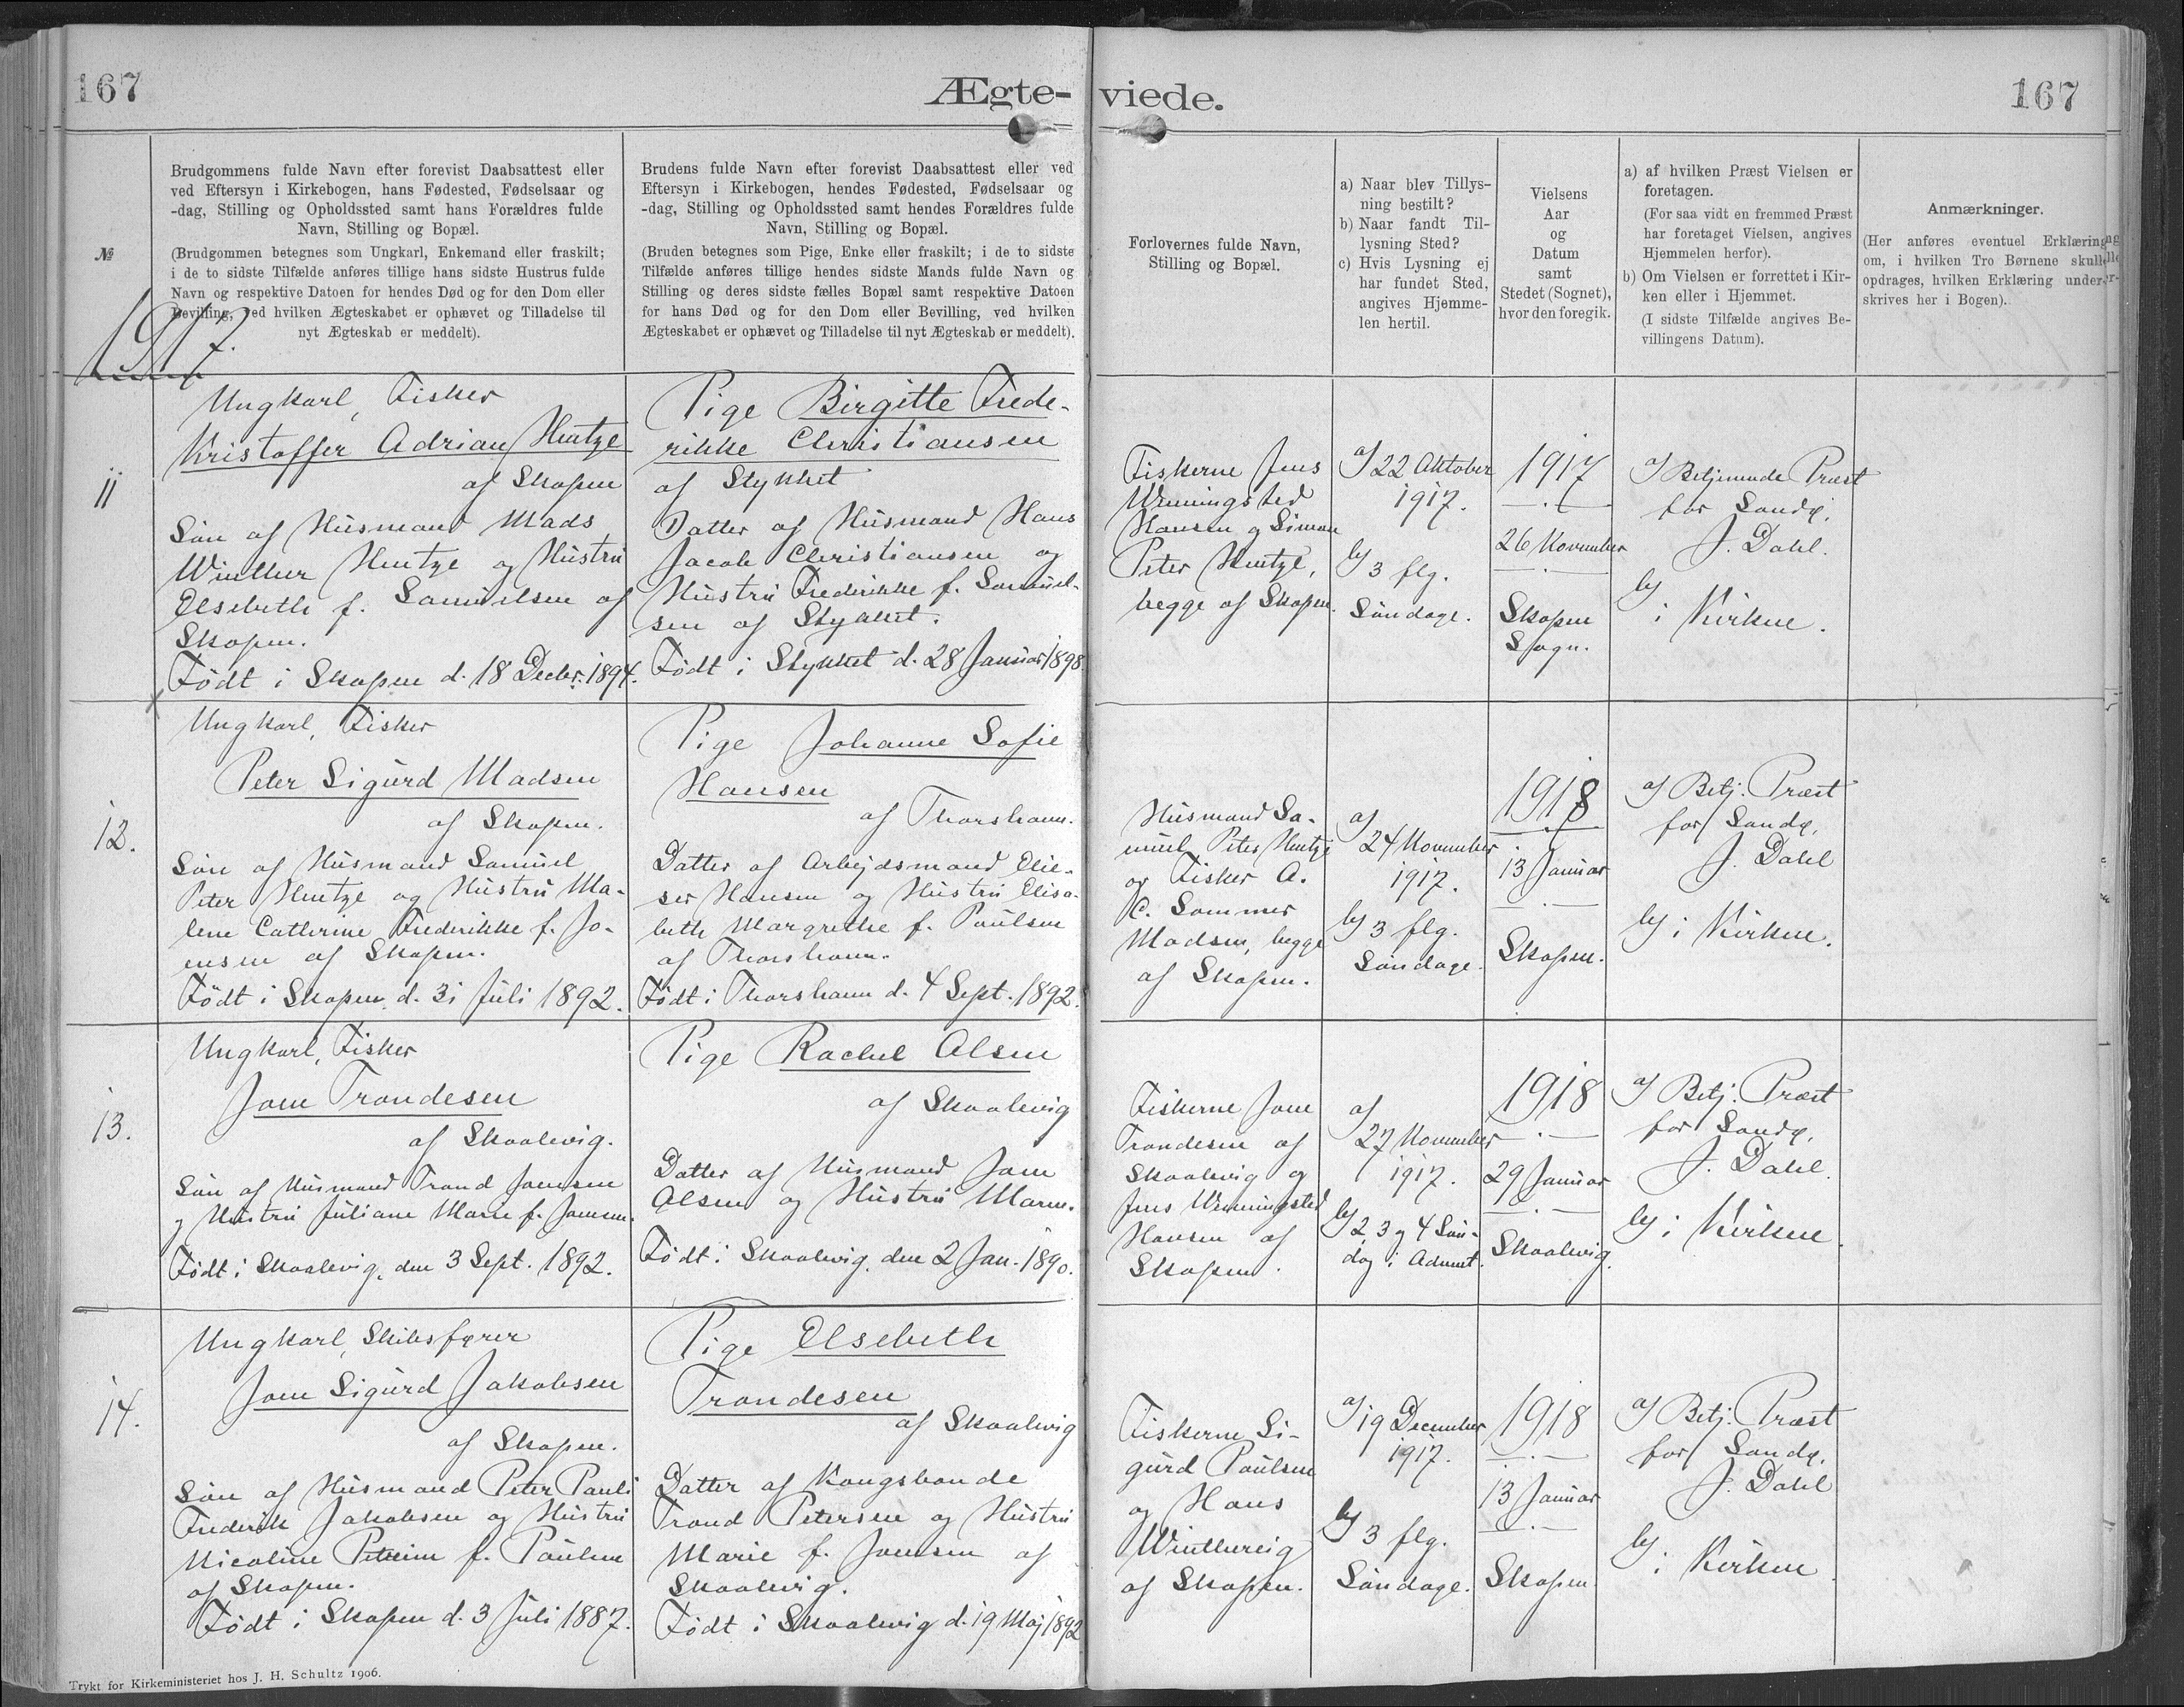 167
Ægte-
viede.
167
№
Brudgommens fulde Navn efter forevist Daabsattest eller
ved Eftersyn i Kirkebogen, hans Fødested, Fødselsaar og
-dag, Stilling og Opholdssted samt hans Forældres fulde
Navn, Stilling og Bopæl.
(Brudgommen betegnes som Ungkarl, Enkemand eller fraskilt;
i de to sidste Tilfælde anføres tillige hans sidste Hustrus fulde
Navn og respektive Datoen for hendes Død og for den Dom eller
Bevilling, ved hvilken Ægteskabet er ophævet og Tilladelse til
nyt Ægteskab er meddelt).
Brudens fulde Navn efter forevist Daabsattest eller ved
Eftersyn i Kirkebogen, hendes Fødested, Fødselsaar og
-dag, Stilling og Opholdssted samt hendes Forældres fulde
Navn, Stilling og Bopæl.
(Bruden betegnes som Pige, Enke eller fraskilt; i de to sidste
Tilfælde anføres tillige hendes sidste Mands fulde Navn og
Stilling og deres sidste fælles Bopæl samt respektive Datoen
for hans Død og for den Dom eller Bevilling, ved hvilken
Ægteskabet er ophævet og Tilladelse til nyt Ægteskab er meddelt).
Forlovernes fulde Navn,
Stilling og Bopæl.
a) Naar blev Tillys-
ning bestilt?
b) Naar fandt Til-
lysning Sted?
c) Hvis Lysning ej
har fundet Sted,
angives Hjemme-
len hertil.
Vielsens
Aar
og
Datum
samt
Stedet (Sognet),
hvor den foregik.
a) af hvilken Præst Vielsen er
foretagen.
(For saa vidt en fremmed Præst
har foretaget Vielsen, angives
Hjemmelen herfor).
b) Om Vielsen er forrettet i Kir-
ken eller i Hjemmet.
(I sidste Tilfælde angives Be-
villingens Datum).
Anmærkninger.
(Her anføres eventuel Erklæring
om, i hvilken Tro Børnene skulle
opdrages, hvilken Erklæring under-
skrives her i Bogen).
1917.
11
Ungkarl, Fisker
Kristoffer Adrian Hentze
af Skopen
Søn af Husmand Mads
Winther Hentze og Hustru
Elsebeth f. Samuelsen af
Skopen.
Født i Skopen d. 18 Decbr. 1894.
Pige Birgitte Frede-
rikke Christiansen
af Stykket
Datter af Husmand Hans
Jacob Christiansen og
Hustru Frederikke f. Samuel-
sen af Stykket.
Født i Stykket d. 28 Januar 1898.
Fiskerne Jens
Wenningsted
Hansen og Simon
Peter Hentze,
begge af Skopen.
a) 22 Oktober
1917.
b) 3 flg.
Søndage.
1917
26 November
Skopen
Sogn.
a) Betjenende Præst
for Sandø,
J. Dahl.
b)
i Kirken.
12.
Ungkarl, Fisker
Peter Sigurd Madsen
af Skopen.
Søn af Husmand Samuel
Peter Hentze og Hustru Ma-
lene Cathrine Frederikke f. Jo-
ensen af Skopen.
Født i Skopen d. 31 Juli 1892.
Pige Johanne Sofie
Hansen
af Thorshavn.
Datter af Arbejdsmand Elie-
ser Hansen og Hustru Elisa-
beth Margrethe f. Poulsen
af Thorshavn.
Født i Thorshavn d. 4 Sept. 1892.
Husmand Sa-
muel Peter Hentze
og Fisker A.
C. Sommer
Madsen, begge
af Skopen.
a)
24 November
1917.
b) 3 flg.
Søndage.
1918
13 Januar
Skopen.
a) Betj. Præst
for Sandø,
J. Dahl
b) i Kirken.
13.
Ungkarl, Fisker
Joen Trondesen
af Skaalevig.
Søn af Husmand Trond Joensen
og Hustru Juliane Marie f. Joensen.
Født i Skaalevig, den 3 Sept. 1892.
Pige Rachel Olsen
af Skaalevig
Datter af Husmand Joen
Olsen og Hustru Maren.
Født i Skaalevig, den 2 Jan. 1890.
Fiskerne Joen
Trondesen af
Skaalevig og
Jens Wenningsted
Hansen af
Skopen.
a)
27 November
1917.
b) 2, 3 og 4 Søn-
dag i Advent.
1918
29 Januar
Skaalevig.
a) Betj. Præst
for Sandø,
J. Dahl.
b) i Kirken.
14.
Ungkarl, Skibsfører
Joen Sigurd Jakobsen
af Skopen.
Søn af Husmand Peter Pauli
Frederik Jakobsen og Hustru
Nicoline f. Poulsen
af Skopen.
Født i Skopen d. 3 Juli 1887.
Pige Elsebeth
Trondesen
af Skaalevig
Datter af Kongsbonde
Trond Petersen og Hustru
Marie f. Joensen af
Skaalevig.
Født i Skaalevig d. 19 Maj 1892
Fiskerne Si-
gurd Poulsen
og Hans
Winthereig
af Skopen.
a) 19 December
1917.
b) 3 flg.
Søndage.
1918
13 Januar
Skopen.
a) Betj. Præst
for Sandø,
J. Dahl
b)
i Kirken.
Trykt for Kirkeministeriet hos J. H. Schultz 1906.